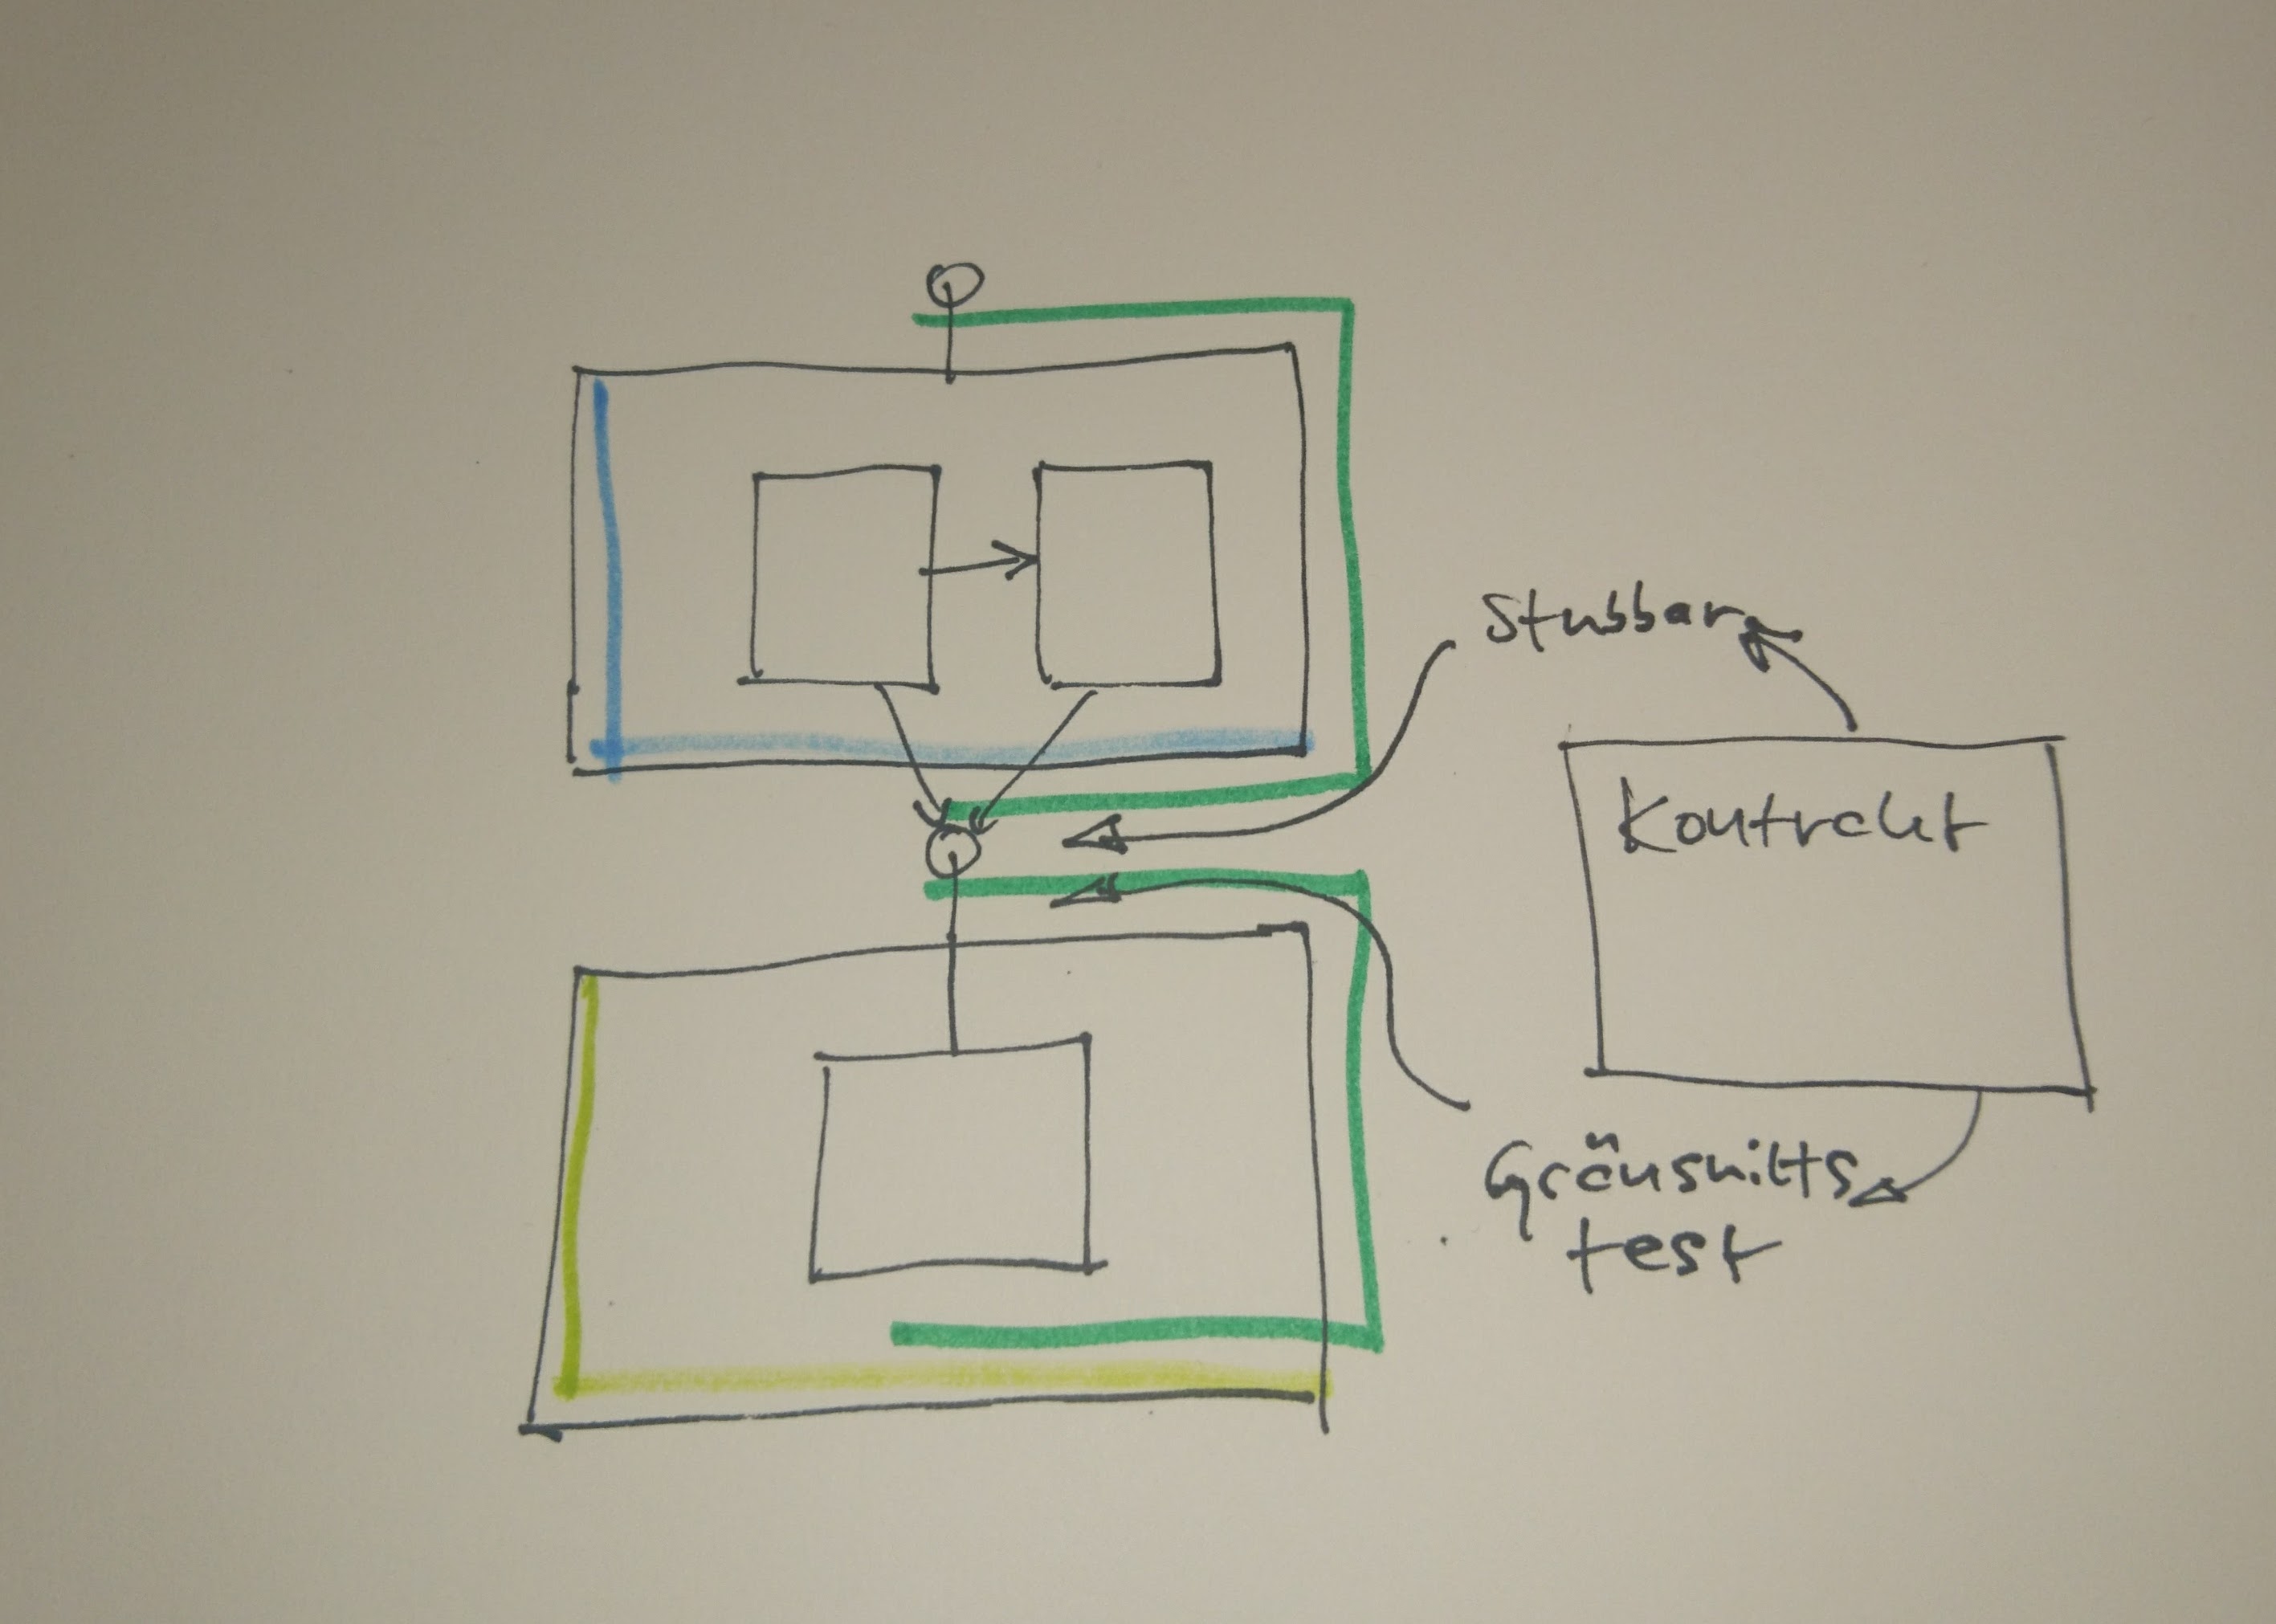 Stubbar
Kontrakt
Gränsnitts
test